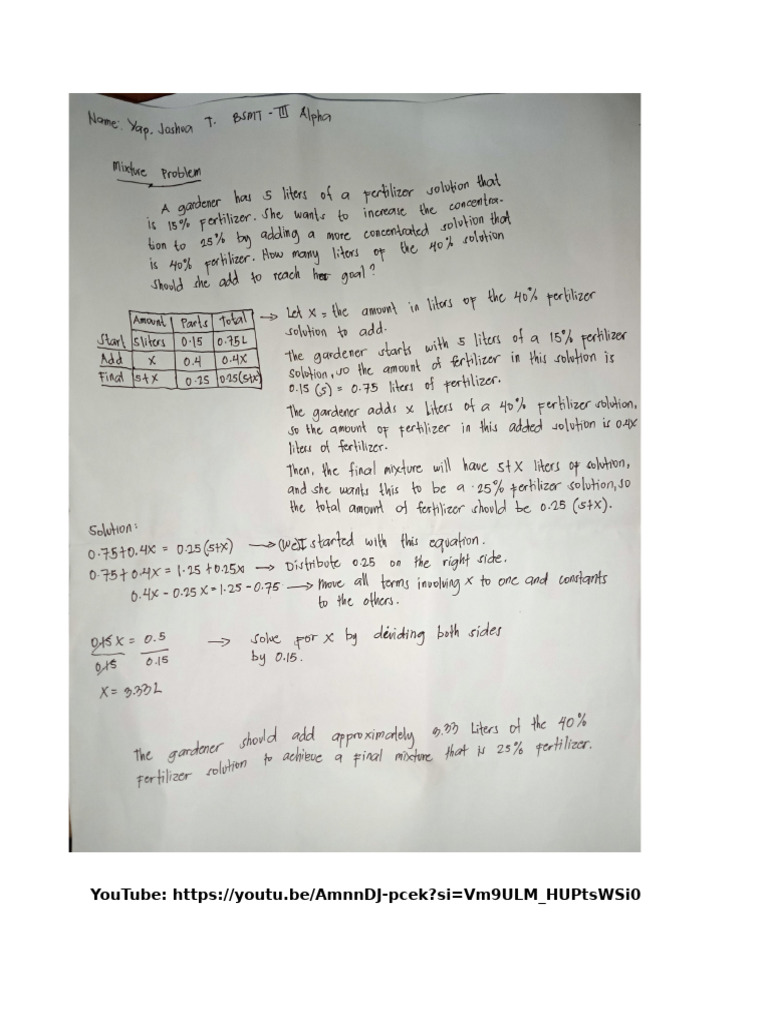 Name: Yap, Joshua T. BSMT - III Alpha
Mixture Problem
A gardener has 5 liters of a fertilizer solution that
is 15% fertilizer. She wants to increase the concentra-
tion to 25% by adding a more concentrated solution that
is 40% fertilizer. How many liters of the 40% solution
should she add to reach her goal?
Amount Parts Total
Start 5liters 0.15 0.75L
Add x 0.4 0.4x
Final 5+x 0.25 0.25(5+x)
→ Let x = the amount in liters of the 40% fertilizer
solution to add.
The gardener starts with 5 liters of a 15% fertilizer
solution, so the amount of fertilizer in this solution is
0.15 (5) = 0.75 liters of fertilizer.
The gardener adds x liters of a 40% fertilizer solution,
so the amount of fertilizer in this added solution is 0.4x
liters of fertilizer.
Then, the final mixture will have 5+x liters of solution,
and she wants this to be a 25% fertilizer solution, so
the total amount of fertilizer should be 0.25 (5+x).
Solution:
0.75+0.4x = 0.25(5+x) → started with this equation.
0.75+0.4x = 1.25+0.25x → Distribute 0.25 on the right side.
0.4x - 0.25x = 1.25 - 0.75 → move all terms involving x to one and constants
to the others.
0.15x = 0.5 → solve for x by dividing both sides
0.15 0.15 by 0.15.
x = 3.33L
The gardener should add approximately 3.33 Liters of the 40%
fertilizer solution to achieve a final mixture that is 25% fertilizer.
YouTube: https://youtu.be/AmnnDJ-pcek?si=Vm9ULM_HUPtsWSi0